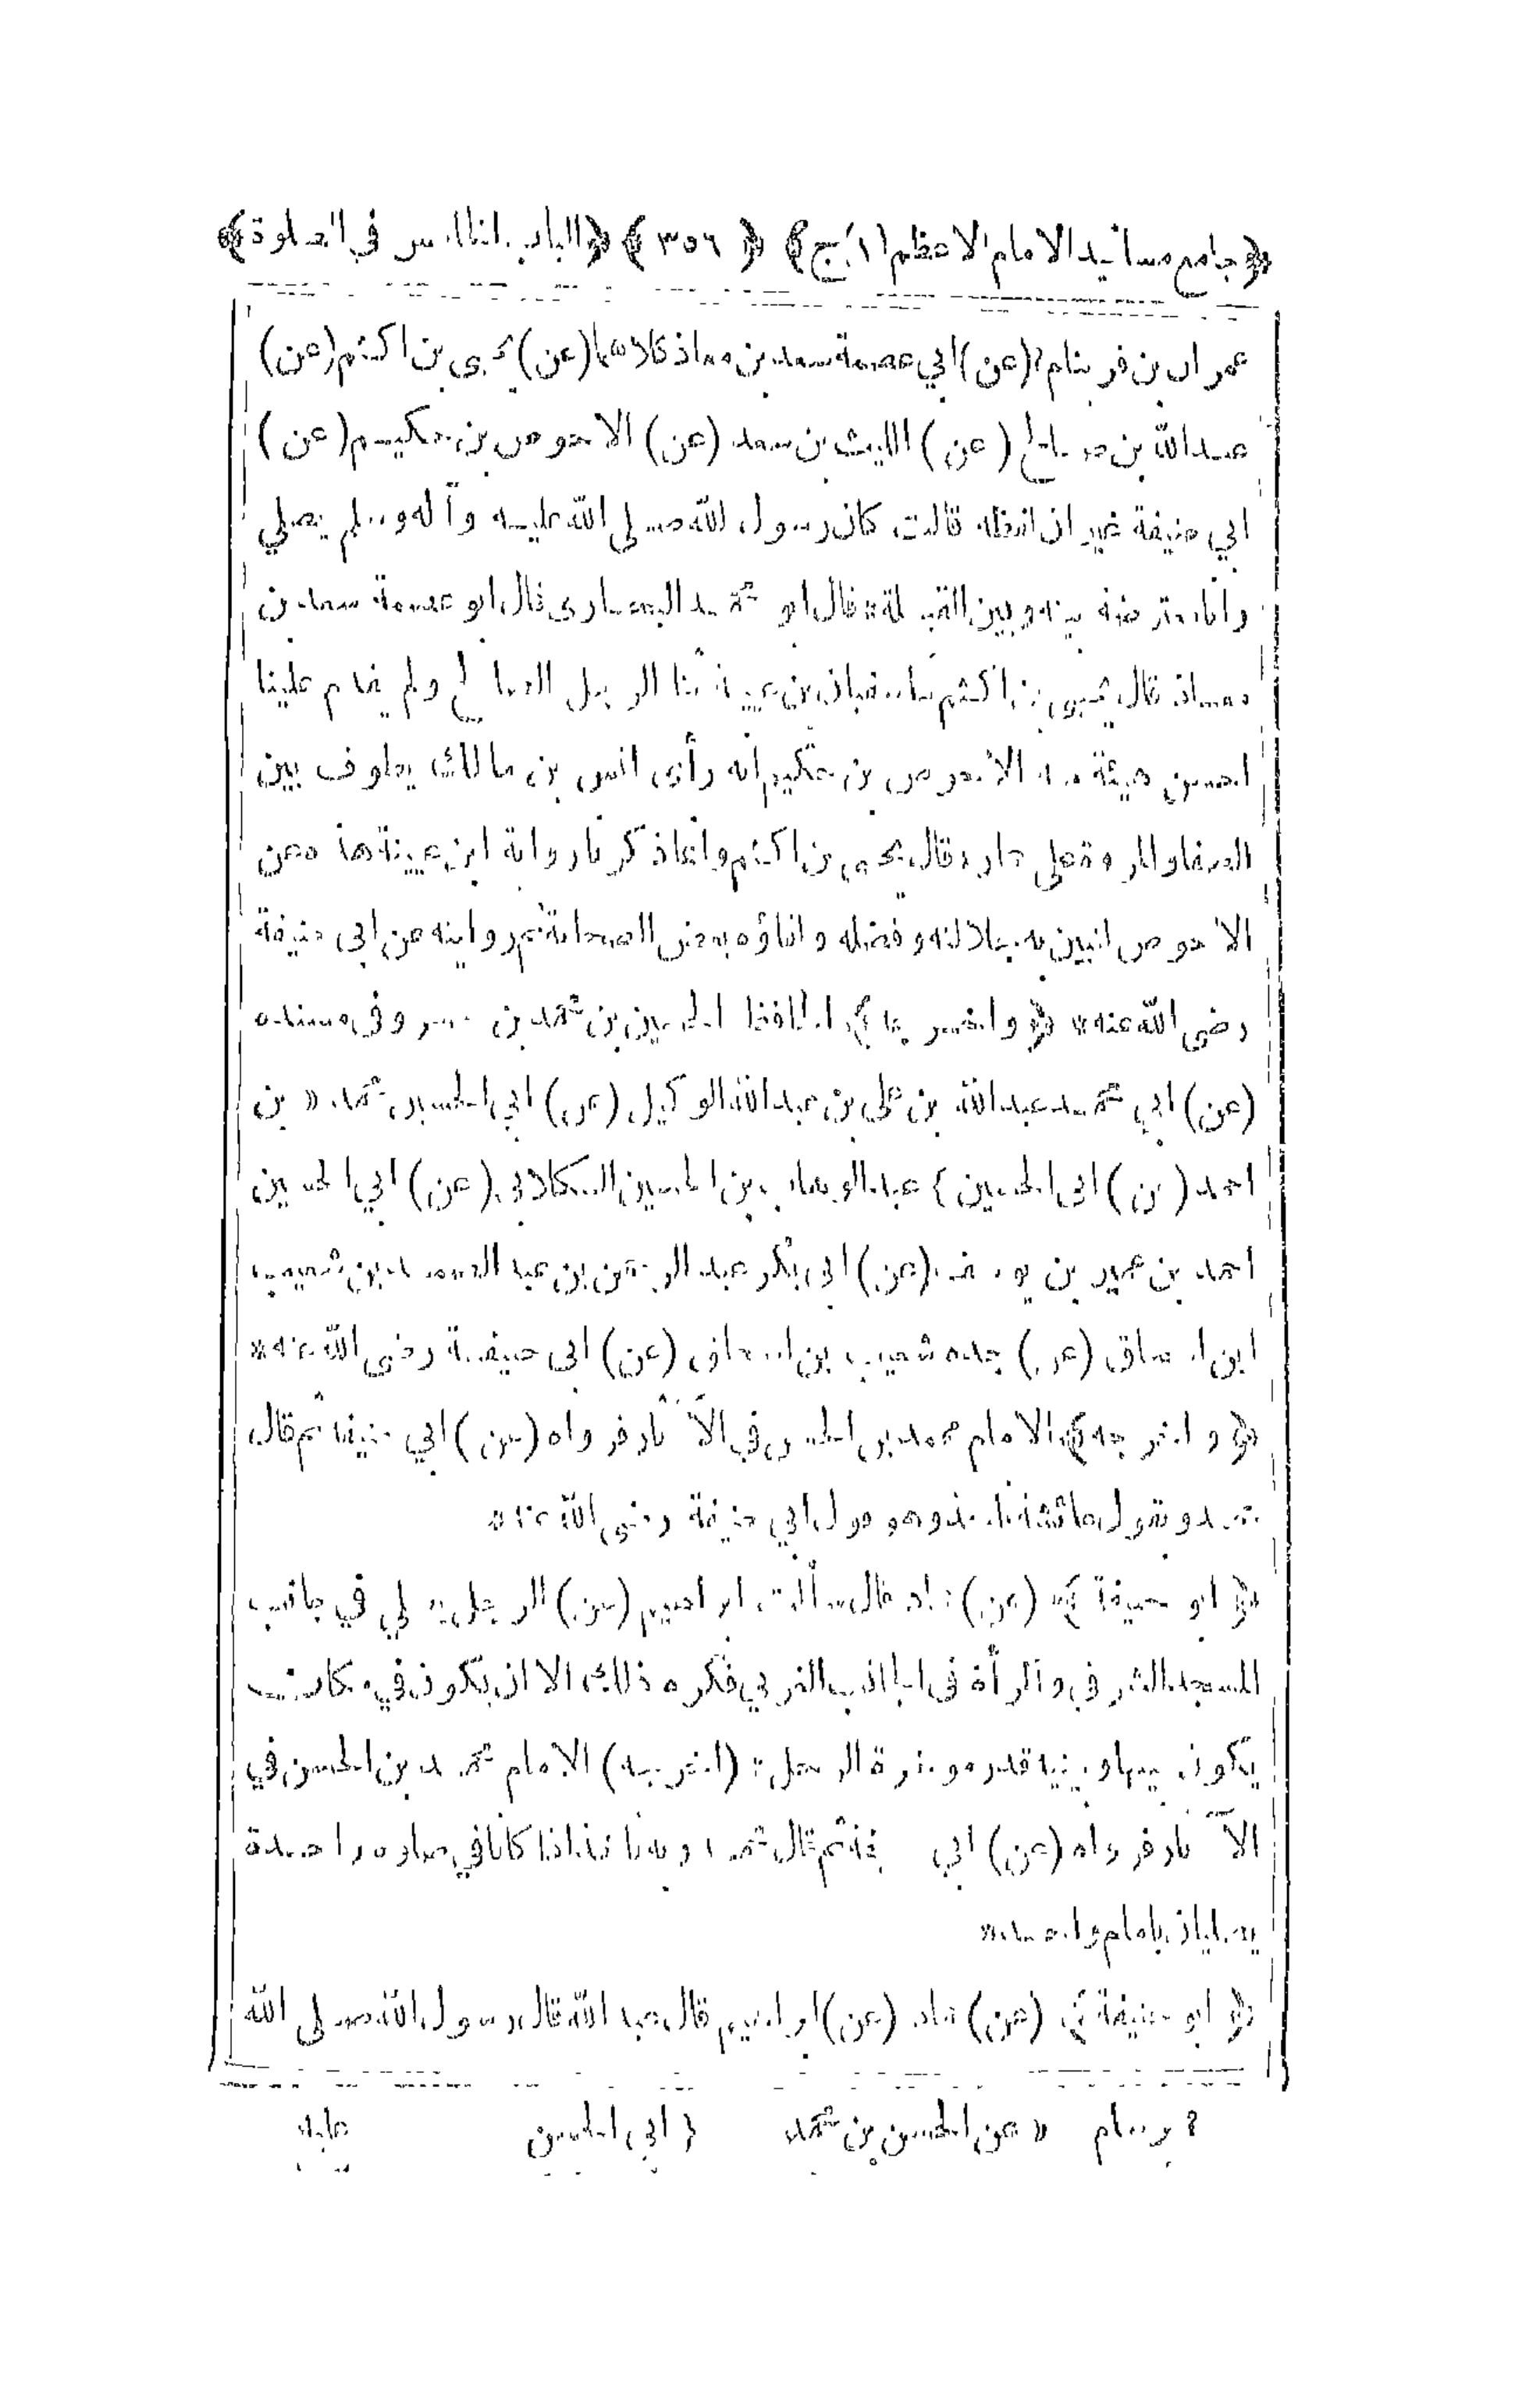 ﴿جامع مسانيد الامام الاعظم (١) ج﴾ ﴿ ٣٥٦ ﴾ ﴿الباب الخامس في الصلوة﴾
عمران بن فرينام ٢ (عن) ابي عصمة سعد بن معاذ كلاهما (عن) يحيى بن اكثم (عن)
عبدالله بن صالح (عن) الليث بن سعد (عن) الاحوص بن حكيم (عن)
ابي حنيفة غير ان لفظه قالت كان رسول الله صلى الله عليه وآله وسلم يصلي
وانا معترضة بينه وبين القبلة * قال ابو محمد البخارى قال ابو عصمة سعد بن
معاذ قال يحيى بن اكثم سفيان بن عيينة ثنا الرجل الصالح ولم يقدم علينا
احسن هيئة منه الاحوص بن حكيم انه رأى انس بن مالك يطوف بين
الصفا والمروة على حمار * قال يحيى بن اكثم وانما ذكرنا رواية ابن عيينة هذه عن
الاحوص لنبين به جلالته وفضله ولقاؤه بعض الصحابة ثم روايته عن ابى حنيفة
رضى الله عنه * ﴿واخرجه﴾ الحافظ الحسين بن محمد بن خسرو فى مسنده
(عن) ابي محمد عبدالله بن علي بن عبدالله الوكيل (عن) ابي الحسين محمد * بن
احمد (عن) ابى الحسين } عبد الوهاب بن الحسين الكلابى (عن) ابي الحسين
احمد بن عمير بن يوسف (عن) ابى بكر عبد الرحمن بن عبد الصمد بن شعيب
ابن اسحاق (عن) جده شعيب بن اسحاق (عن) ابى حنيفة رضى الله عنه *
﴿واخرجه﴾ الامام محمد بن الحسن في الآثار فرواه (عن) ابي حنيفة ثم قال
محمد وبقول عائشة نأخذ وهو قول ابي حنيفة رضى الله عنه *
﴿ابو حنيفة﴾ (عن) حماد قال سألت ابراهيم (عن) الرجل يصلي في جانب
المسجد الشرقى والمرأة فى الجانب الغربي فكره ذلك الا ان يكون في مكان
يكون بينها وبينه قدر موخرة الرحل * (اخرجه) الامام محمد بن الحسن في
الآثار فرواه (عن) ابي حنيفة ثم قال محمد وبه نأخذ اذا كانا في صلوة واحدة
يصليان بامام واحد *
﴿ابو حنيفة﴾ (عن) حماد (عن) ابراهيم قال عبد الله قال رسول الله صلى الله
٢ * عن الحسن بن محمد } ابى الحسن عليه